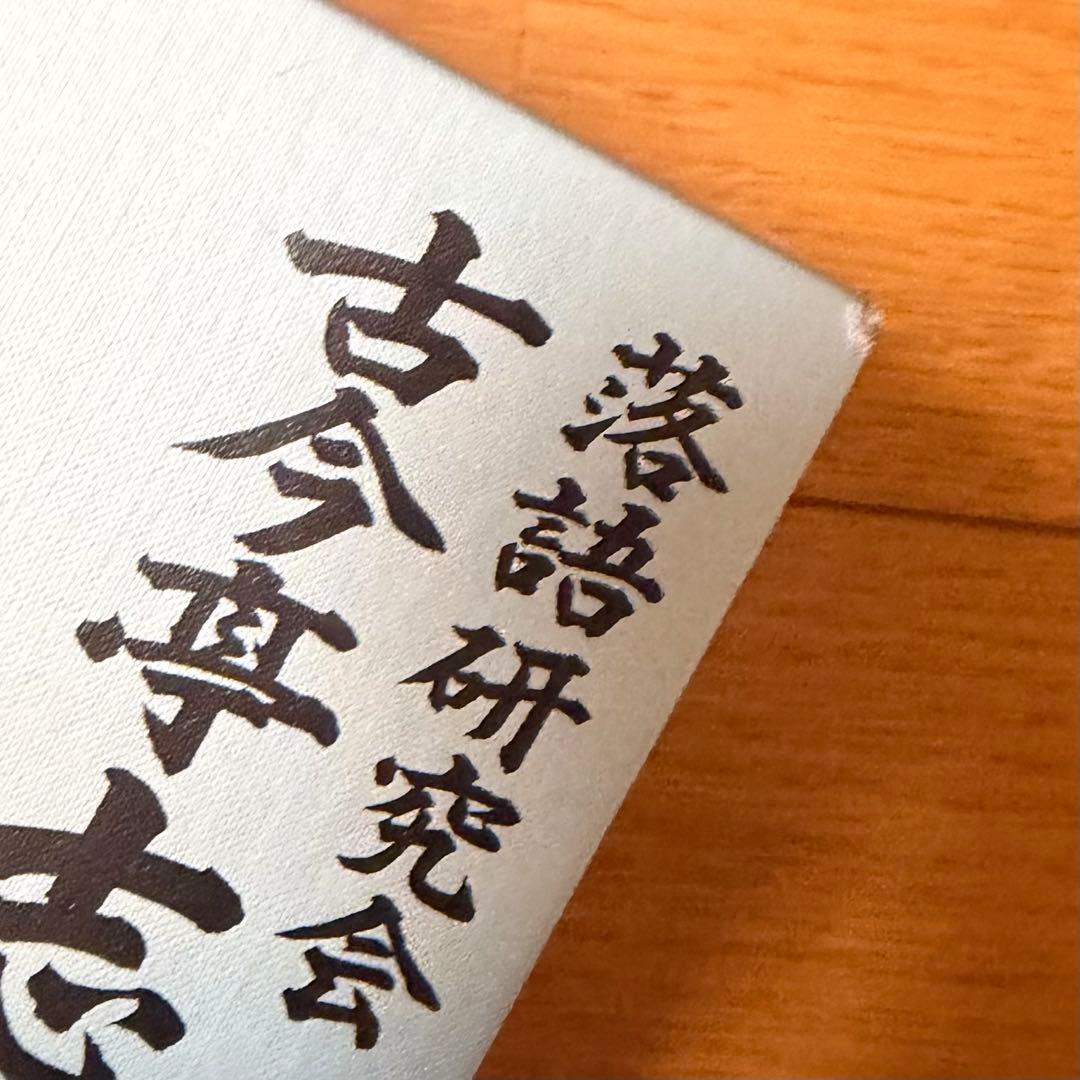 落語研究会
古今亭志